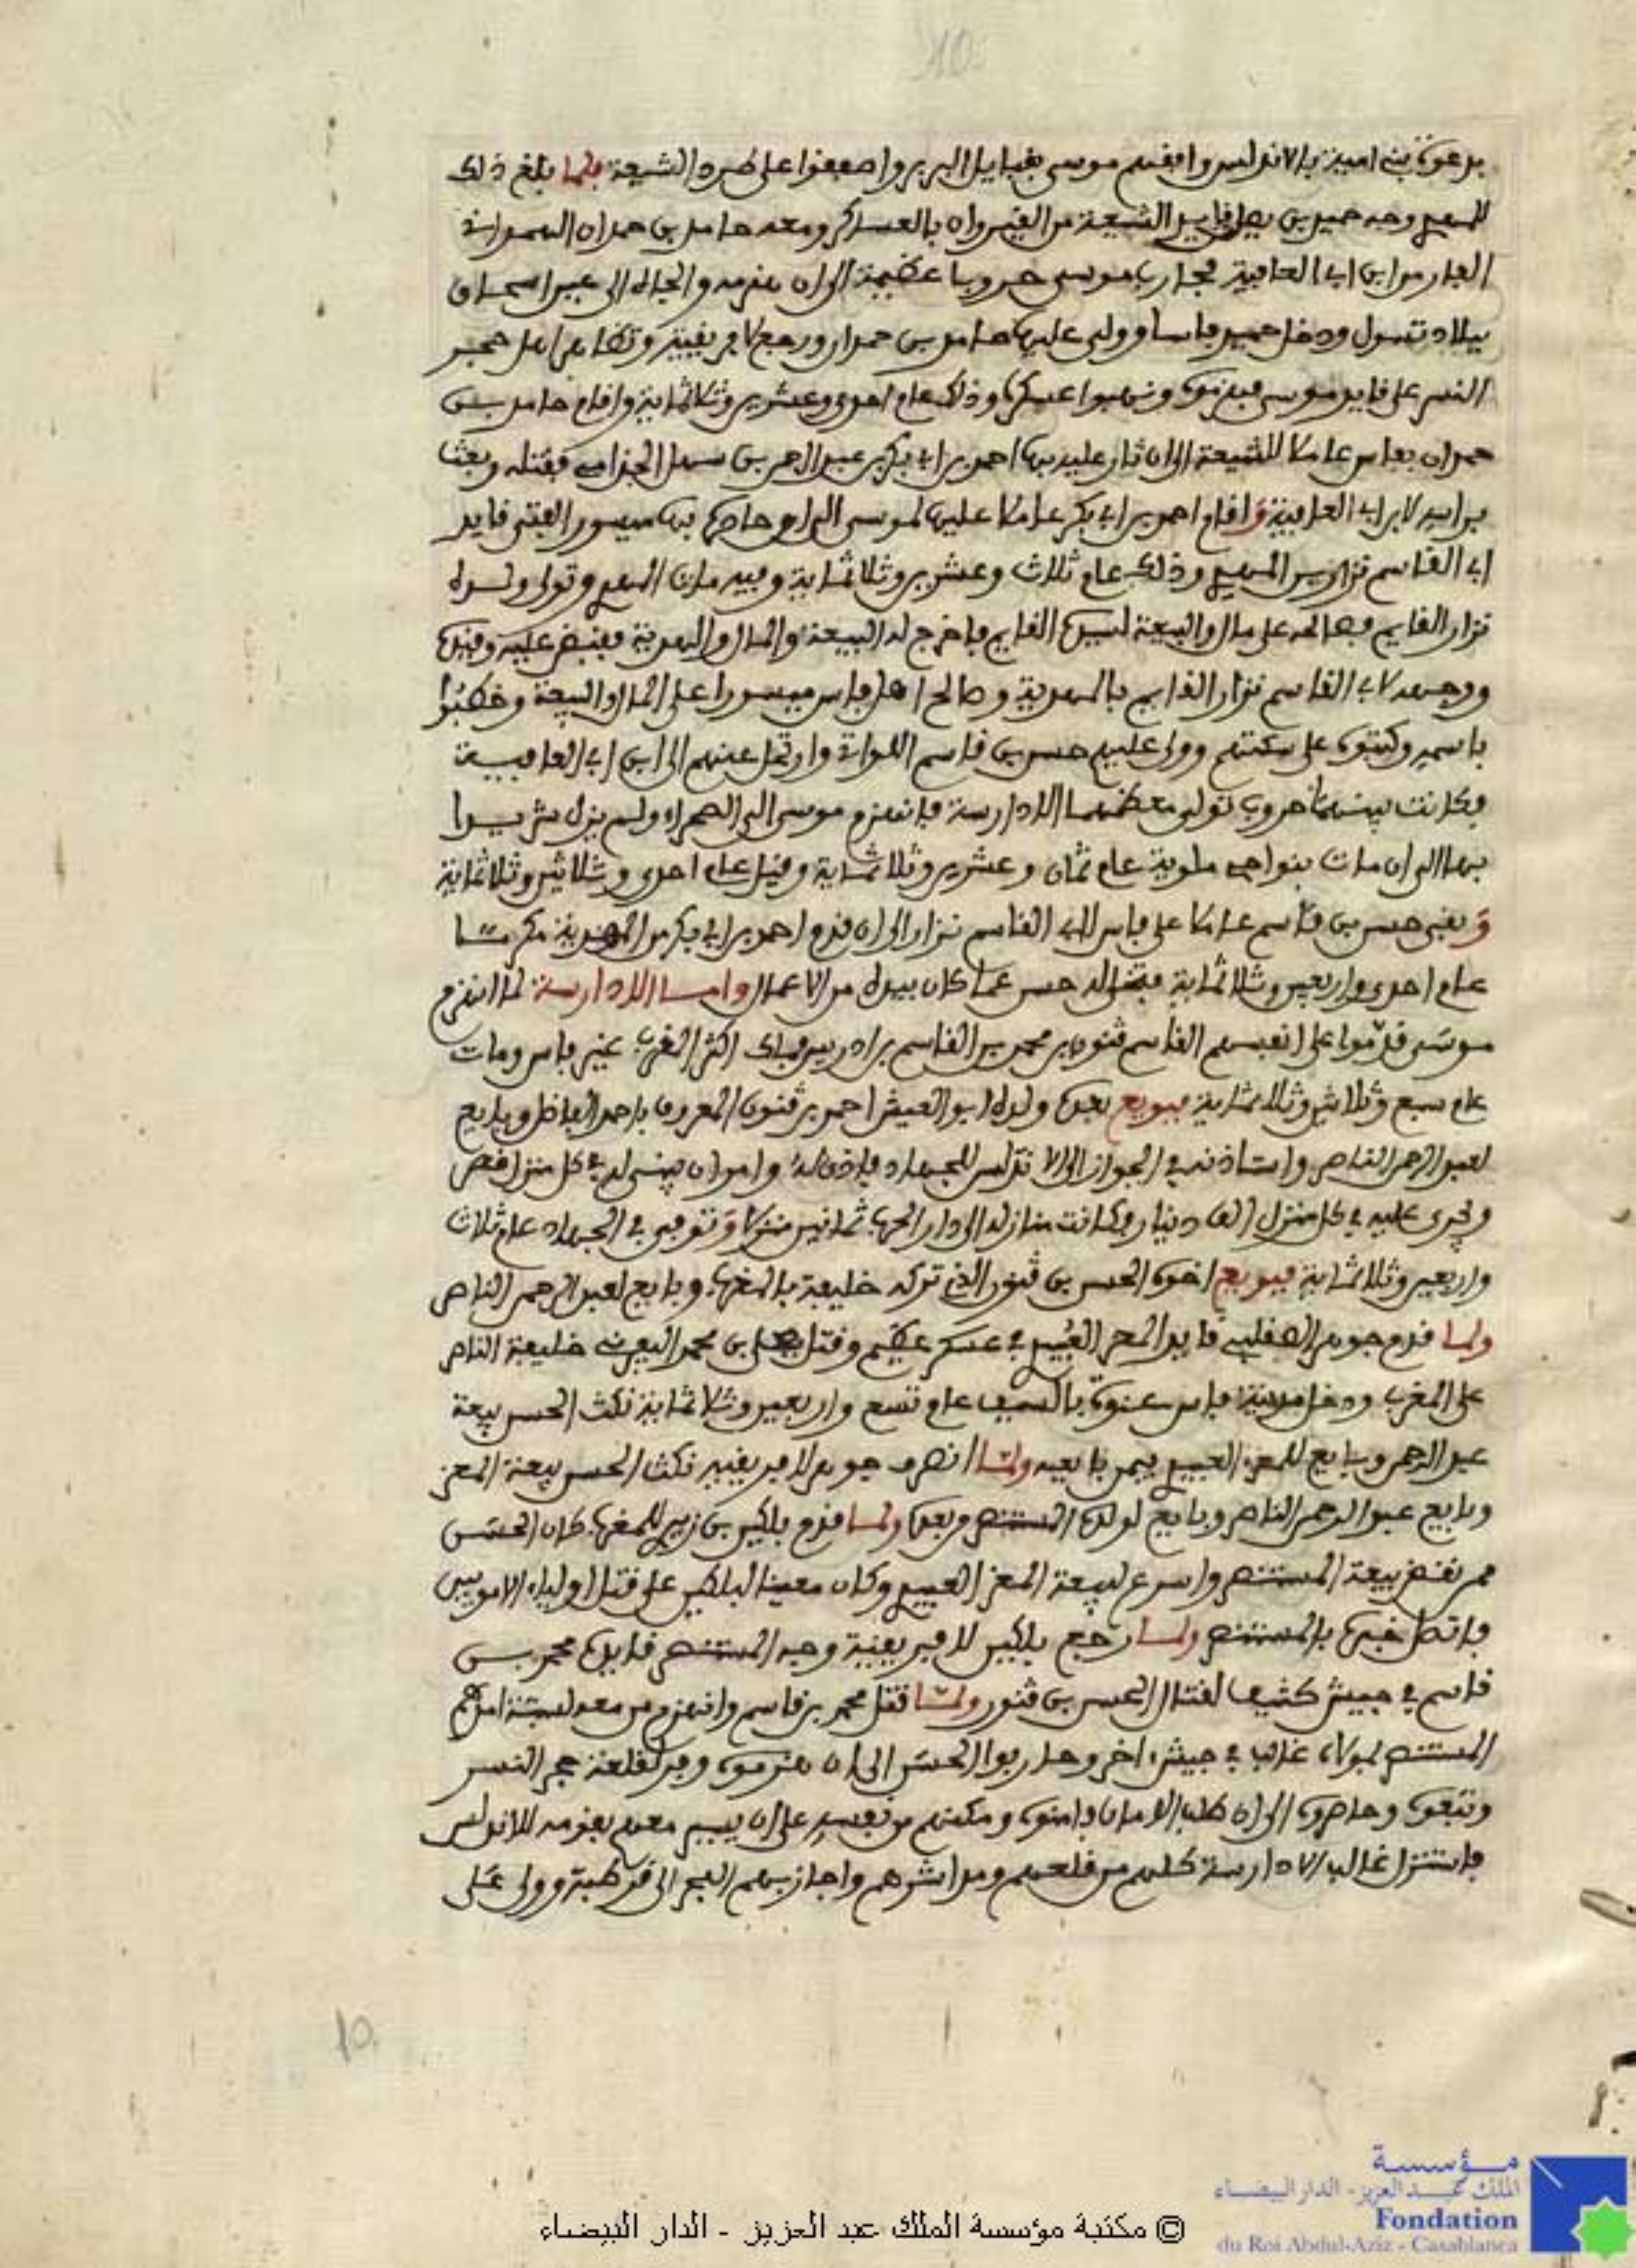 10
بدعوة بني امية بالاندلس وافقهم موسى بقبايل البربر واصفقوا على طرد الشيعة فلما بلغ ذلك
المهدي وجه حميد بن يصل قايد الشيعة من القيروان بالعساكر ومعه حامد بن حمدان الهمداني
الفار من ابن ابي العافية فحارب موسى حروبا عظيمة الى ان هزمه والجاه الى عين اسحاق
ببلاد تسول ودخل حميد فاسا وولى عليها حامد بن حمدان ورجع لافريقية وتظاهر اهل حجر
النسر على قايد موسى فهزموه ونهبوا عسكره وذلك عام احدى وعشرين وثلاثماية واقام حامد بن
حمدان بفاس عاملا للشيعة الى ان ثار عليه بها احمد بن ابي بكر بن عبد الرحمن بن سهل الجذامي فقتله وبعث
براسه لابن ابي العافية واقام احمد بن ابي بكر عاملا عليها لموسى الى ان حاصره بها ميسور الفتى قايد
ابي القاسم نزار بن المهدي وذلك عام ثلاث وعشرين وثلاثماية وفيه مات المهدي وتولى ولده
نزار القايم فصالحه على مال والبيعة لسيده القايم فاخرج له البيعة والمال والهدية فقبض عليه وقيده
ووجهه لابي القاسم نزار القايم بالمهدية وصالح اهل فاس ميسورا على المال والبيعة وخطبوا
باسمه وكتبوه على سكتهم وولى عليهم حسن بن قاسم اللواتي وارتحل عنهم الى ابن ابي العافية
فكانت بينهما حروب تولى معظمها الادارسة فانهزم موسى الى الصحراء ولم يزل شريدا
بها الى ان مات بنواحي ملوية عام ثمان وعشرين وثلاثماية وقيل عام احدى وثلاثين وثلاثماية
وبقي حسن بن قاسم عاملا على فاس لابي القاسم نزار الى ان قدم احمد بن ابي بكر من المهدية مكرما
عام احدى واربعين وثلاثماية فتخلى له حسن عما كان بيده من الاعمال واما الادارسة لما انهزم
موسى قدموا على انفسهم القاسم قنون بن محمد بن القاسم بن ادريس فملك اكثر المغرب غير فاس ومات
عام سبع وثلاثين وثلاثماية فبويع بعده ولده ابو العيش احمد بن قنون المعروف باحمد الفاضل وبايع
لعبد الرحمن الناصر واستاذنه في الجواز الى الاندلس للجهاد فاذن له وامر ان يبنى له في كل منزل قصر
ويجرى عليه في كل منزل الف دينار وكانت منازله الى دار الحرب ثمانين منزلا وتوفي في الجهاد عام ثلاث
واربعين وثلاثماية فبويع اخوه الحسن بن قنون الذي تركه خليفة بالمغرب وبايع لعبد الرحمن الناصر
ولما قدم جوهر الصقلي قايد المعز العبيدي في عسكر عظيم وقتل يعلى بن محمد اليفرني خليفة الناصر
على المغرب ودخل مدينة فاس عنوة بالسيف عام تسع واربعين وثلاثماية نكث الحسن بيعة
عبد الرحمن وبايع للمعز العبيدي فيمن بايعه ولما انصرف جوهر لافريقية نكث الحسن بيعة المعز
وبايع عبد الرحمن الناصر وبايع لولده المستنصر بعده ولما قدم بلكين بن زيري للمغرب كان الحسن
ممن نقض بيعة المستنصر واسرع لبيعة المعز العبيدي وكان معينا لبلكين على قتل اولياء الامويين
فاتصل خبره بالمستنصر ولما رجع بلكين لافريقية وجه المستنصر قايده محمد بن
قاسم في جيش كثيف لقتال الحسن بن قنون ولما قتل محمد بن قاسم وانهزم من معه لسبتة امدهم
المستنصر بمولاه غالب في جيش اخر وحاربوا الحسن الى ان هزموه وفر لقلعة حجر النسر
وتبعوه وحاصروه الى ان طلب الامان فامنوه ومكنهم من نفسه على ان يسير معهم بقومه للاندلس
فاستنزل غالب الادارسة كلهم من قلعتهم ومداشرهم واجاز بهم البحر الى قرطبة وولى على
10
مؤسسة
الملك عبد العزيز - الدار البيضاء
Fondation
du Roi Abdul-Aziz - Casablanca
© مكتبة مؤسسة الملك عبد العزيز - الدار البيضاء